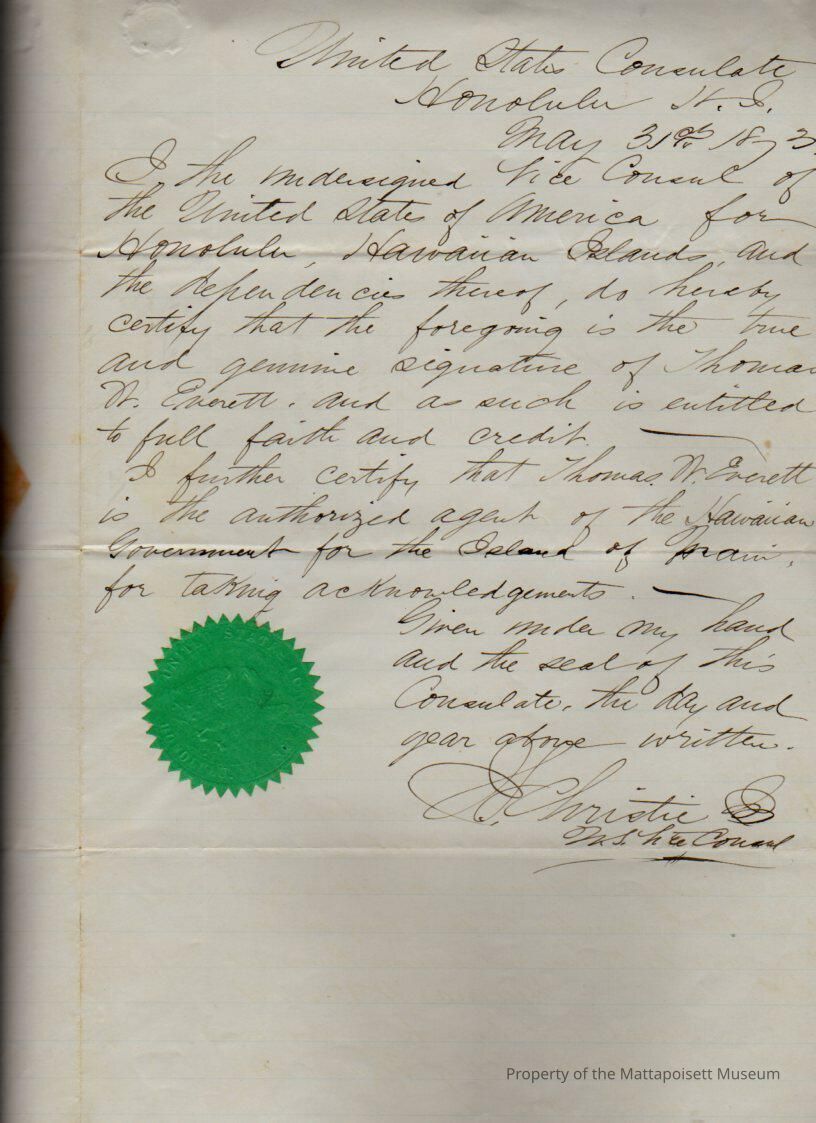 United States Consulate
Honolulu H. I.
May 31st 1873
I the undersigned Vice Consul of
the United States of America for
Honolulu, Hawaiian Islands, and
the dependencies thereof, do hereby
certify that the foregoing is the true
and genuine signature of Thomas
W. Everett. and as such is entitled
to full faith and credit.
I further certify that Thomas. W. Everett
is the authorized agent of the Hawaiian
Government for the Island of Maui,
for taking acknowledgements.
Given under my hand
and the seal of this
Consulate, the day and
year above written.
Christie
U.S. Vice Consul
Property of the Mattapoisett Museum